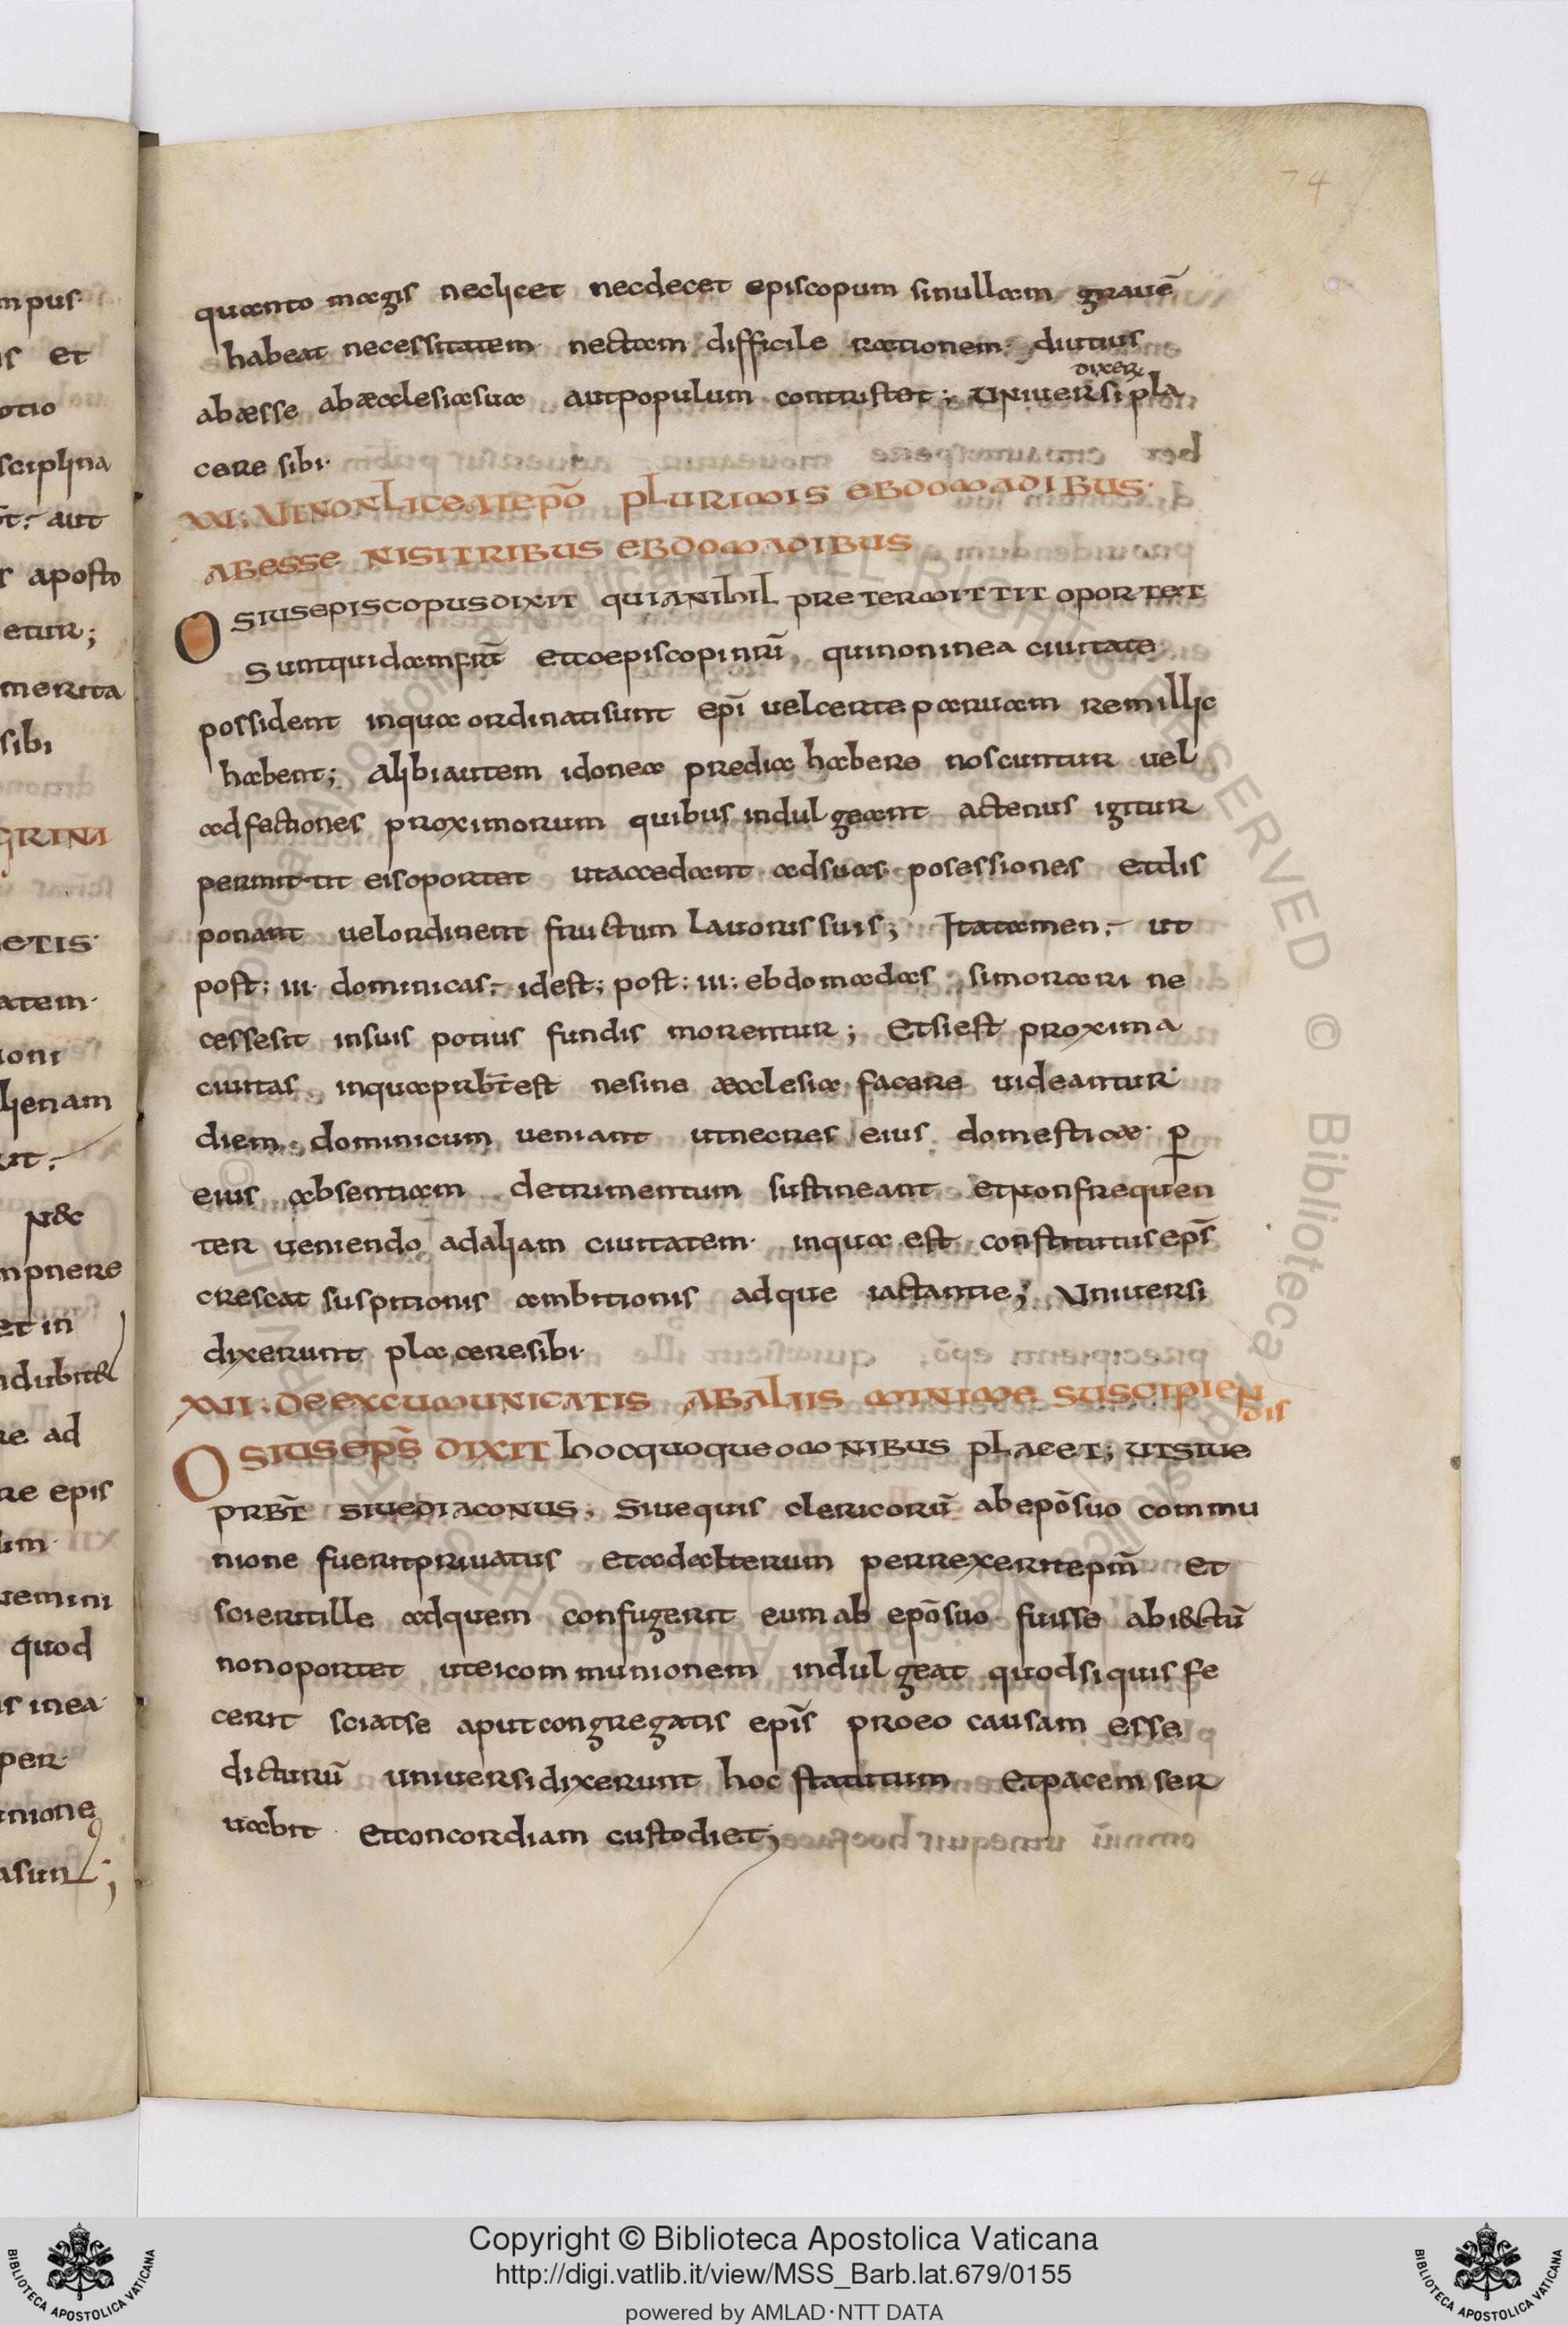 74
quanto magis neclicet necdecet episcopum sinullam grauē
habeat necessitatem· nectam difficile rationem· diutius
dixer
abæsse abæcclesiasua autpopulum contristet; Uniuersi pla
cere sibi·
XXI: UTNONLICEATEPŌ PLURIMIS EBDOMADIBUS·
ABESSE NISITRIBUS EBDOMADIBUS
OSIUSEPISCOPUSDIXIT QUIANIHIL PRETERMITTIT OPORTET
Suntquidamfrīt etcoepiscopinrī quinoninea ciuitate
possident inqua ordinatisunt epī uelcerte paruam remillic
habent; Alibiautem idonea predia habere noscuntur uel
adfectiones proximorum quibus indulgeant actenus igitur
permittit eisoportet utaccedant adsuas posessiones etdis
ponant uelordinent fructum Lauoris suis; Itatamen;- ut
post: III· dominicas;- idest; post: III: ebdomadas simorari ne
cessesit insuis potius fundis morentur; Etsiest proxima
ciuitas inquaprbt̄est nesine æcclesia facere uideantur
diem dominicum ueniant utnecres eius domesticæ· ꝑ
eius absentiam detrimentum sustineant etnonfrequen
ter ueniendo adaliam ciuitatem· inqua est constitutusep̄s
crescat suspitionis ambitionis adque iactantie; Uniuersi
dixerunt placeresibi·
XXII: DEEXCUMUNICATIS ABALIIS MINIME SUSCIPIEN
DIS
OSIUSEPS̄ DIXIT hocquoqueomnibus placet; utsiue
prbt̄ siuediaconus, Siuequis clericorū abepōsuo commu
nione fueritpriuatus etadalterum perrexeritepm̄ et
scieritille adquem confugerit eum ab epōsuo fuisse abi&ctū
nonoportet uteicommunionem indulgeat quodsiquis fe
cerit sciatse aputcongregatis epīs proeo causam esse
dicturū uniuersidixerunt hoc statutum Etpacem ser
uabit Etconcordiam custodiet;
mpus·
is et
otio
sciplina
t;- aut
r aposto
etur;
merita
sibi
GRINI
ETIS·
atem·
ioni
lienam
it;-
N&c
mpnere
et in
ndubit&
re ad
re epis
um·
uemini
quod
is inea·
per·
unione
asunt;
Copyright © Biblioteca Apostolica Vaticana
http://digi.vatlib.it/view/MSS_Barb.lat.679/0155
powered by AMLAD·NTT DATA
BIBLIOTECA APOSTOLICA VATICANA
BIBLIOTECA APOSTOLICA VATICANA